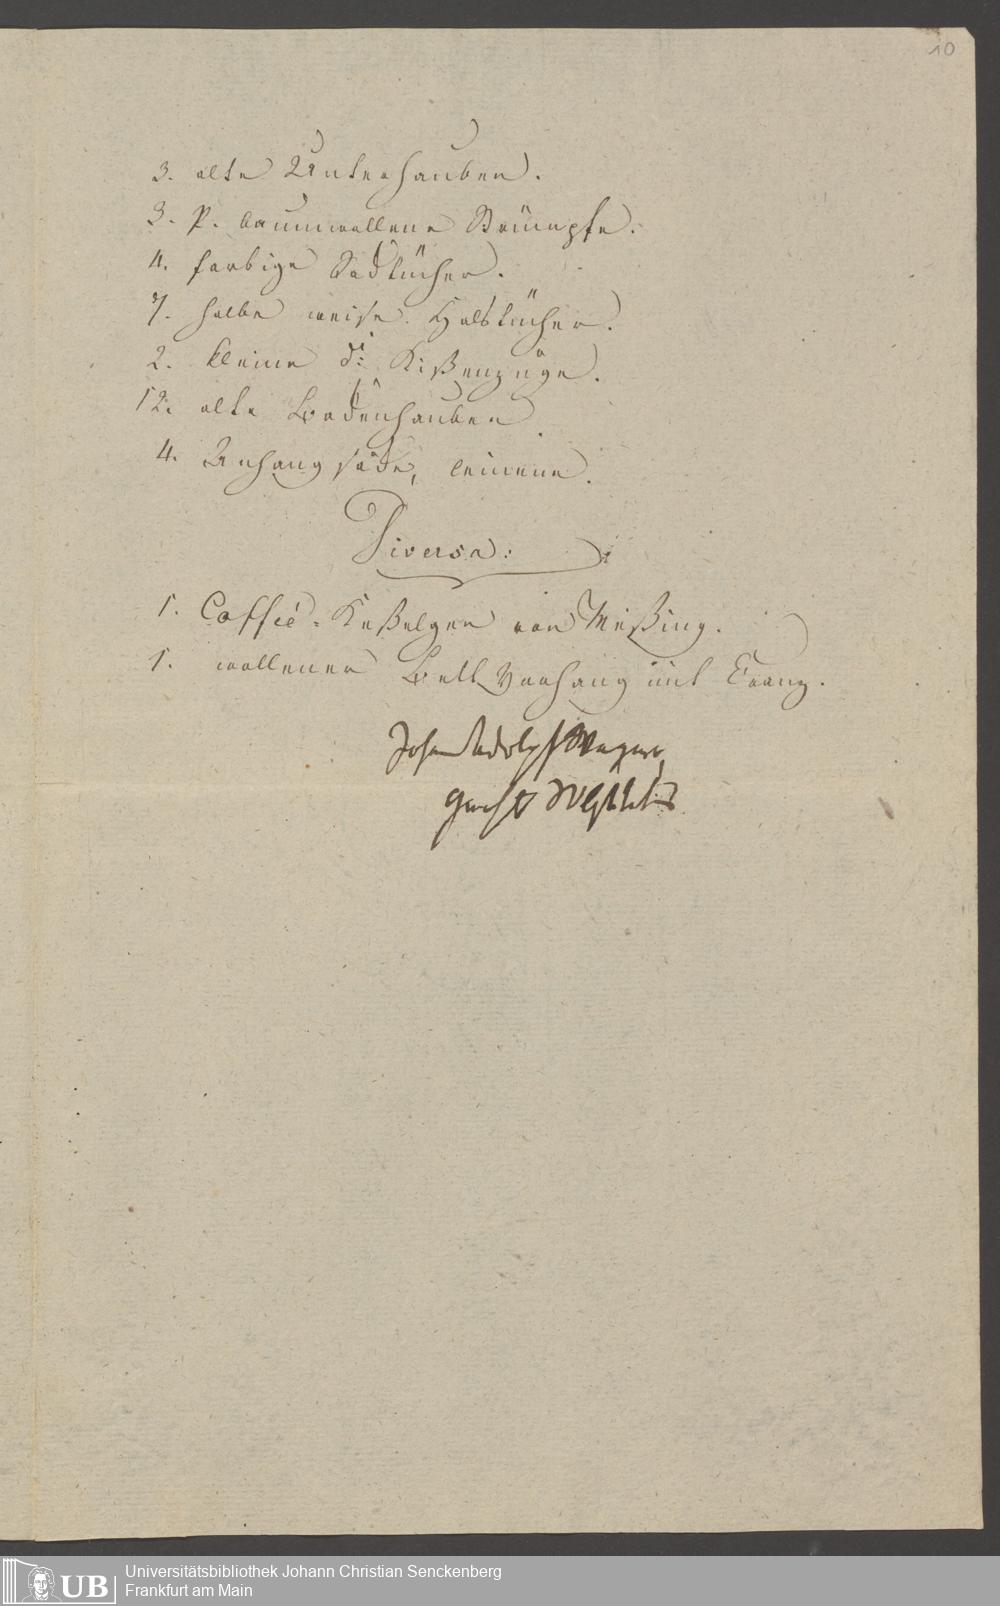 10
3. alte Unterhauben.
3. p. baumwollene Strümpfe.
4. farbige Sacktücher.
7. halbe weise Halstücher.
2. kleine di: Kißenzüge.
12. alte Badenhauben.
4. Anhangsäcke, leinene.
Diversa:
1. Caffeé-Keßelgen von Meßing.
1. wollener Bett Vorhang mit Cranz.
Johann Adolph Wagner
UB Universitätsbibliothek Johann Christian Senckenberg
Frankfurt am Main